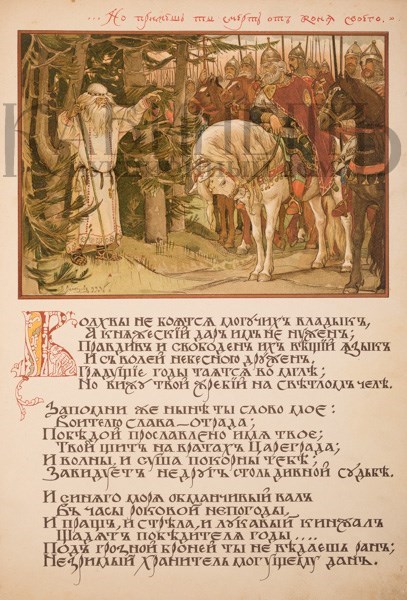 Но примешь ты смерть отъ коня своего.
Волхвы не боятся могучихъ владыкъ,
А княжескій даръ имъ не нуженъ;
Правдивъ и свободенъ ихъ вѣщій языкъ
И съ волей небесною друженъ.
Грядущіе годы таятся во мглѣ;
Но вижу твой жребій на свѣтломъ челѣ.
Запомни же нынѣ ты слово мое:
Воителю слава—отрада;
Побѣдой прославлено имя твое;
Твой щитъ на вратахъ Цареграда;
И волны, и суша покорны тебѣ;
Завидуетъ недругъ столь дивной судьбѣ.
И синяго моря обманчивый валъ
Въ часы роковой непогоды,
И пращъ, и стрѣла, и лукавый кинжалъ
Щадятъ побѣдителя годы....
Подъ грозной броней ты не вѣдаешь ранъ;
Незримый хранитель могущему данъ.